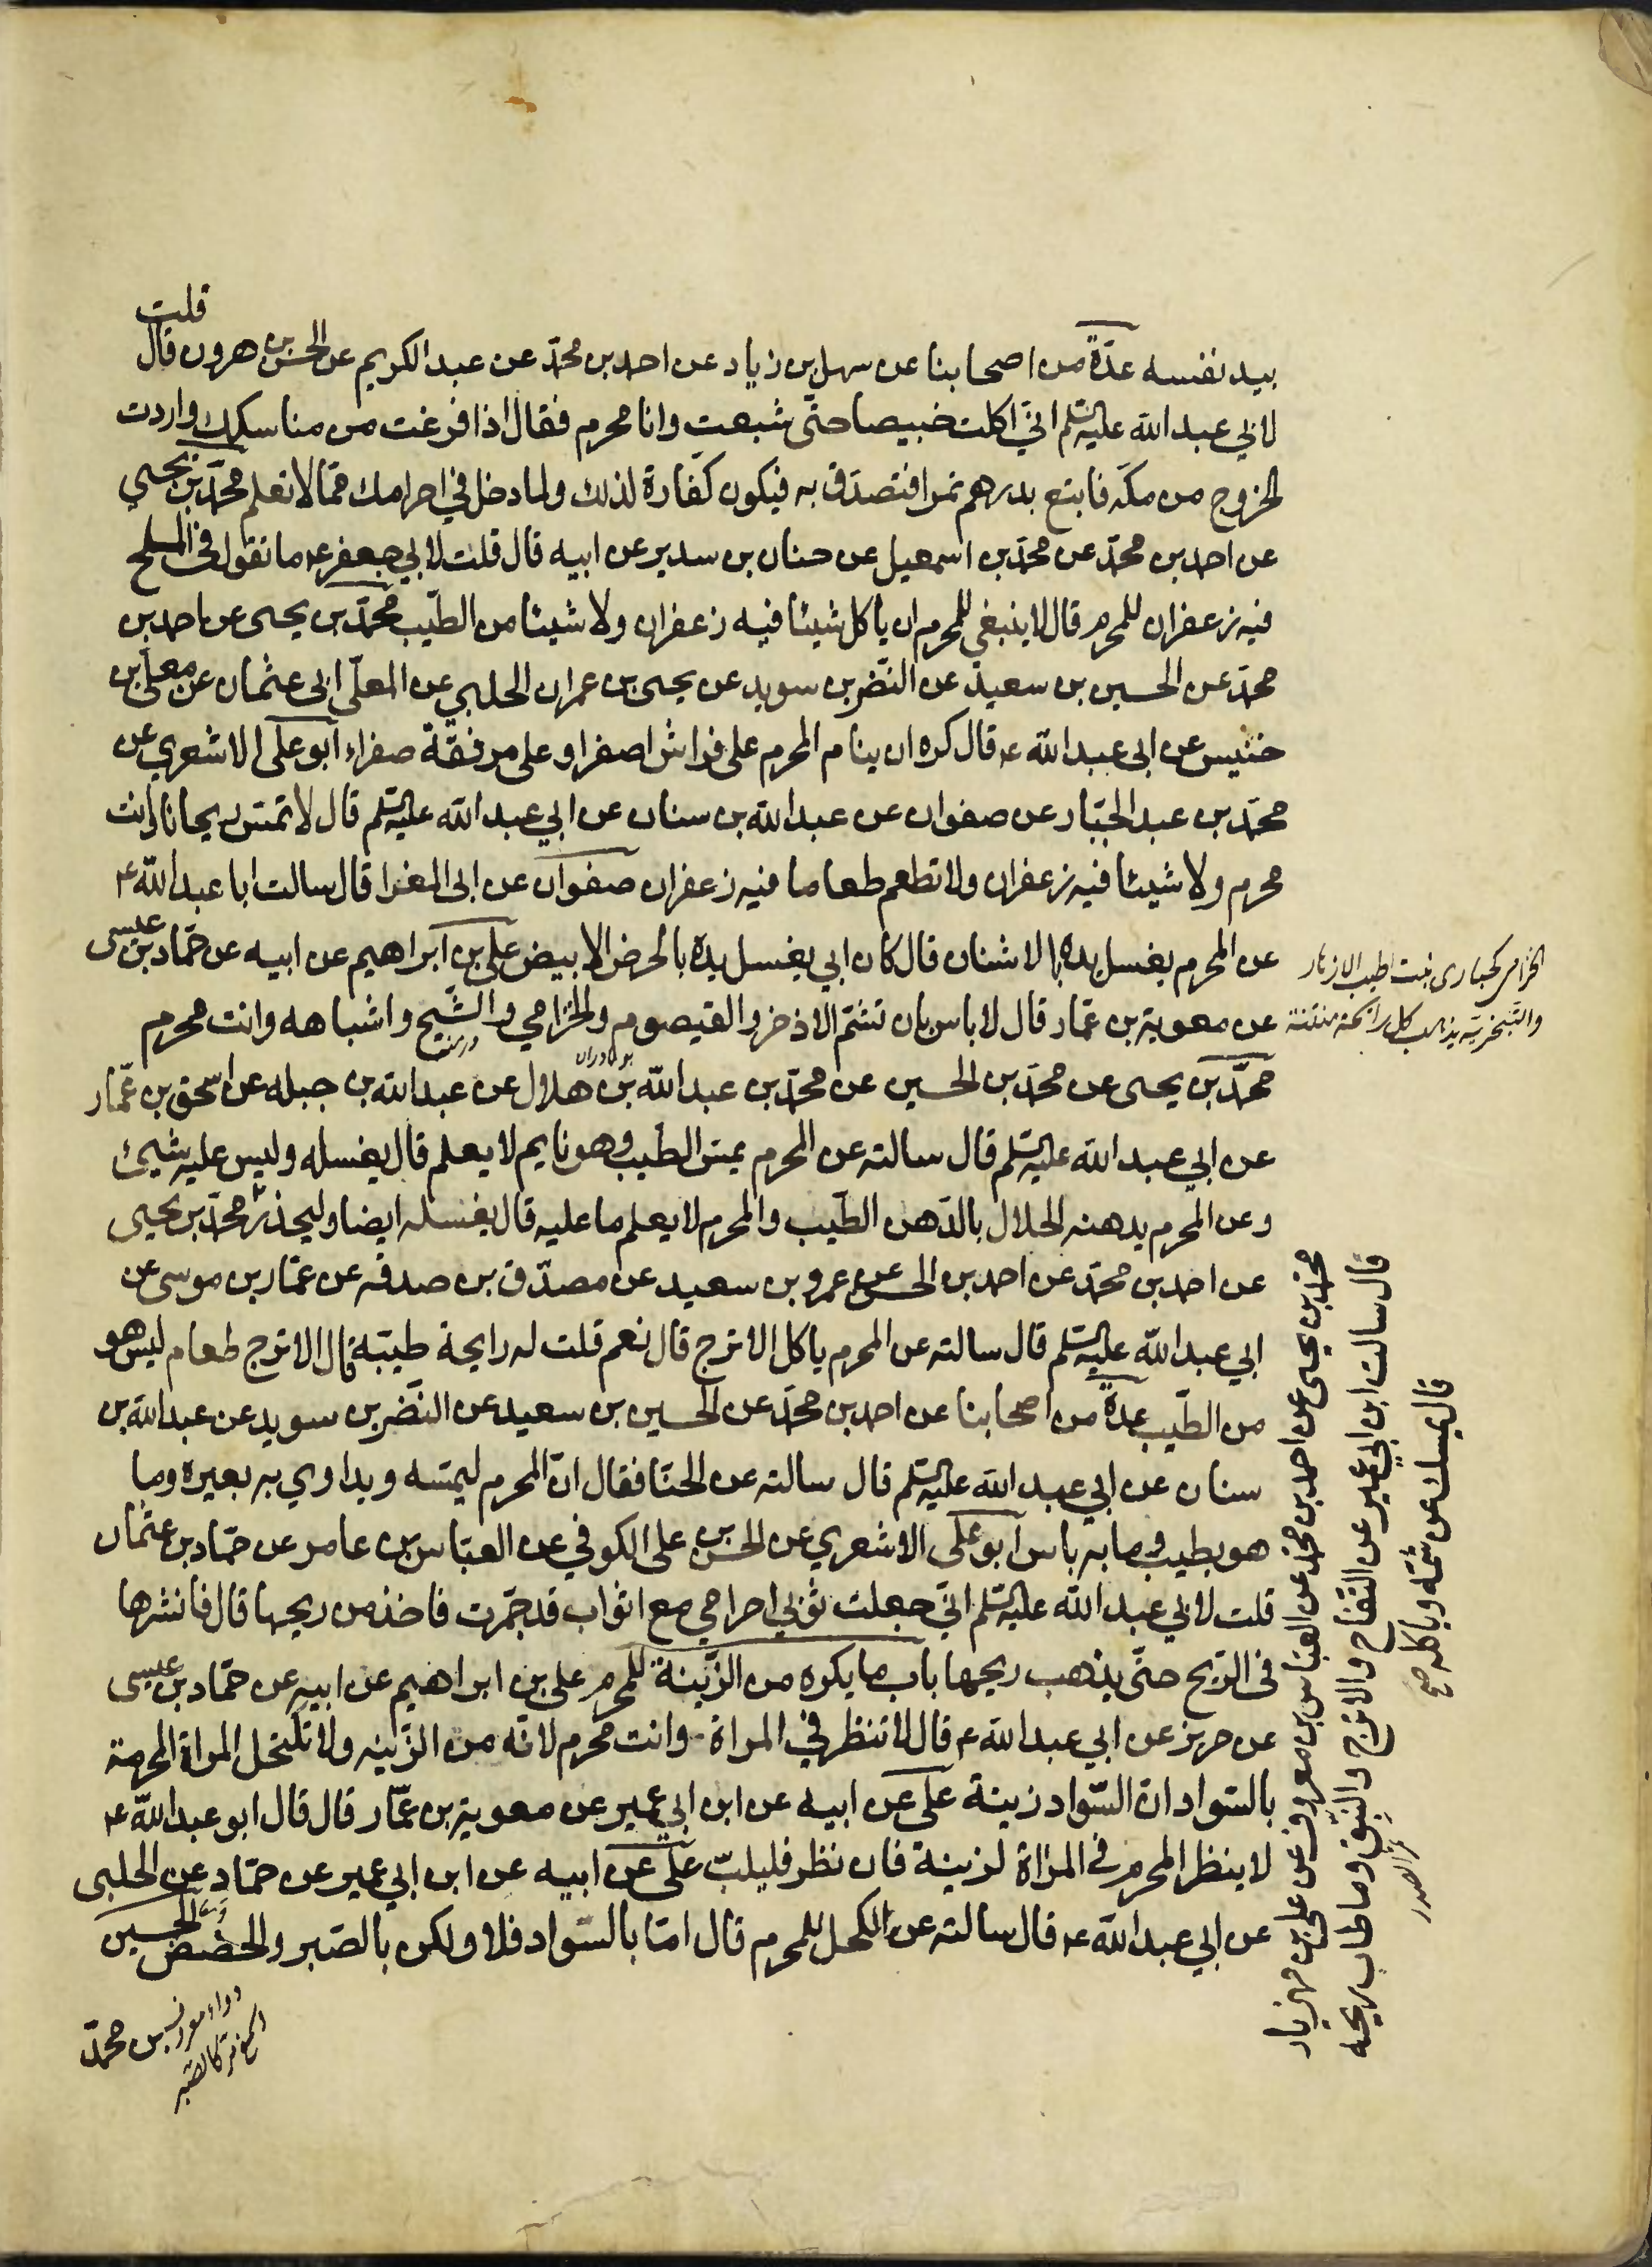 بيد نفسه عدّة من اصحابنا عن سهل بن زياد عن احمد بن محمّد عن عبد الكريم عن الحسن بن هرون قال قلت
لابي عبد الله عليه السّلم انّي اكلت خبيصا حتّى شبعت وانا محرم فقال اذا فرغت من مناسكك واردت
الخروج من مكّه فابتع بدرهم تمرا فتصدّق به فيكون كفّارة لذلك ولما دخل في احرامك ممّا لا تعلم محمّد بن يحيى
عن احمد بن محمّد عن محمّد بن اسمعيل عن حنان بن سدير عن ابيه قال قلت لابي جعفر ع ما تقول في الملح
فيه زعفران للمحرم قال لا ينبغي للمحرم ان ياكل شيئا فيه زعفران ولا شيئا من الطّيب محمّد بن يحيى عن احمد بن
محمّد عن الحسين بن سعيد عن النّضر بن سويد عن يحيى بن عمران الحلبي عن المعلّى ابي عثمان عن معلّى بن
خنيس عن ابي عبد الله ع قال كره ان ينام المحرم على فراش اصفر او على مرفقة صفراء ابو علي الاشعري عن
محمّد بن عبد الجبّار عن صفوان عن عبد الله بن سنان عن ابي عبد الله عليه السّلم قال لا تمسّ ريحانا وانت
محرم ولا شيئا فيه زعفران ولا تطعم طعاما فيه زعفران صفوان عن ابي المغرا قال سالت ابا عبد الله ع
عن المحرم يغسل يده بالاشنان قال كان ابي يغسل يده بالحرض الابيض علي بن ابراهيم عن ابيه عن حمّاد بن عيسى
عن معوية بن عمّار قال لا باس بان تشتمّ الاذخر والقيصوم والخزامي والشّيح واشباهه وانت محرم
محمّد بن يحيى عن محمّد بن الحسين عن محمّد بن عبد الله بن هلال عن عبد الله بن جبله عن اسحق بن عمّار
عن ابي عبد الله عليه السّلم قال سالته عن المحرم يمسّ الطّيب وهو نايم لا يعلم قال يغسله وليس عليه شيئ
وعن المحرم يدهنه الحلال بالدّهن الطّيب والمحرم لا يعلم ما عليه قال يغسله ايضا وليحذر محمّد بن يحيى
عن احمد بن محمّد عن احمد بن الحسن عن عمرو بن سعيد عن مصدّق بن صدقه عن عمّار بن موسى عن
ابي عبد الله عليه السّلم قال سالته عن المحرم ياكل الاترج قال نعم قلت له رايحة طيّبة قال الاترج طعام ليس هو
من الطّيب عدّة من اصحابنا عن احمد بن محمّد عن الحسين بن سعيد عن النّضر بن سويد عن عبد الله بن
سنان عن ابي عبد الله عليه السّلم قال سالته عن الحنّا فقال انّ المحرم ليمسّه ويداوي به بعيره وما
هو بطيب وما به باس ابو علي الاشعري عن الحسن بن علي الكوفي عن العبّاس بن عامر عن حمّاد بن عثمان
قلت لابي عبد الله عليه السّلم انّي جعلت ثوبي احرامي مع اثواب قد جمّرت فاخذ من ريحها قال فانشرها
فى الرّيح حتّى يذهب ريحها باب ما يكره من الزّينة للمحرم علي بن ابراهيم عن ابيه عن حمّاد بن عيسى
عن حريز عن ابي عبد الله ع قال لا تنظر في المراة وانت محرم لانّه من الزّينه ولا تكتحل المراة المحرمة
بالسّواد ان السّواد زينة علي عن ابيه عن ابن ابي عمير عن معوية بن عمّار قال قال ابو عبد الله ع
لا ينظر المحرم في المراة لزينة فان نظر فليلبّ علي عن ابيه عن ابن ابي عمير عن حمّاد عن الحلبي
عن ابي عبد الله ع قال سالته عن الكحل للمحرم قال امّا بالسّواد فلا ولكن بالصّبر والحضض الحسين
بن محمّد
الخزامى كحبارى نبت اطيب الازهار
والتبخر به يذهب كل رائحة منتنة
محمّد بن يحيى عن احمد بن محمّد عن العبّاس بن معروف عن علي بن مهزيار
قال سالت ابن ابي عمير عن التّفاح والاترج والنّبق وما طاب ريحه
قال يمسك عن شمّه وياكله صح